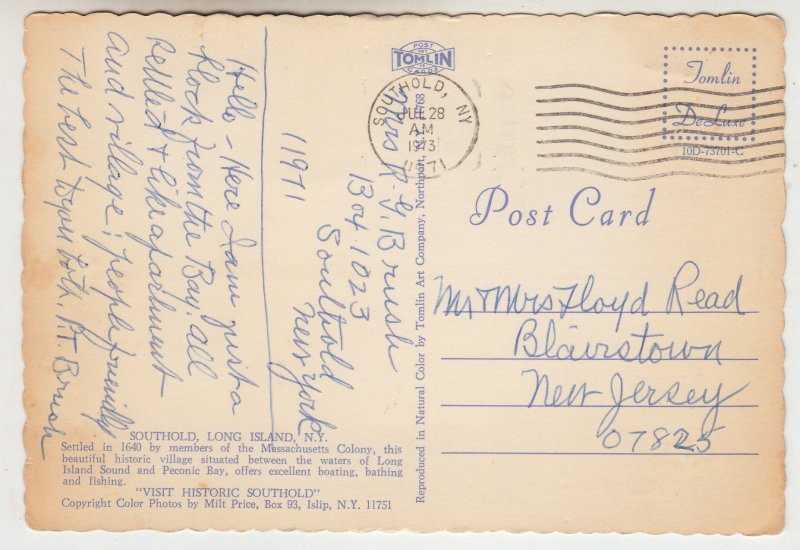 POST
ART
TOMLIN
CARDS
Tomlin
DeLuxe
10D-73701-C
SOUTHOLD, NY
JUL 28
AM
1973
11971
Post Card
Hello - Here I am just a
block from the Bay: all
settled & like apartment
and village; people friendly
The best to you both. R.T. Brush
Mrs R. G. Brush
Box 1023
Southold
New York
11971
Mr & Mrs Floyd Read
Blairstown
New Jersey
07825
Reproduced in Natural Color by Tomlin Art Company, Northport, 11768
SOUTHOLD, LONG ISLAND, N.Y.
Settled in 1640 by members of the Massachusetts Colony, this
beautiful historic village situated between the waters of Long
Island Sound and Peconic Bay, offers excellent boating, bathing
and fishing.
"VISIT HISTORIC SOUTHOLD"
Copyright Color Photos by Milt Price, Box 93, Islip, N.Y. 11751